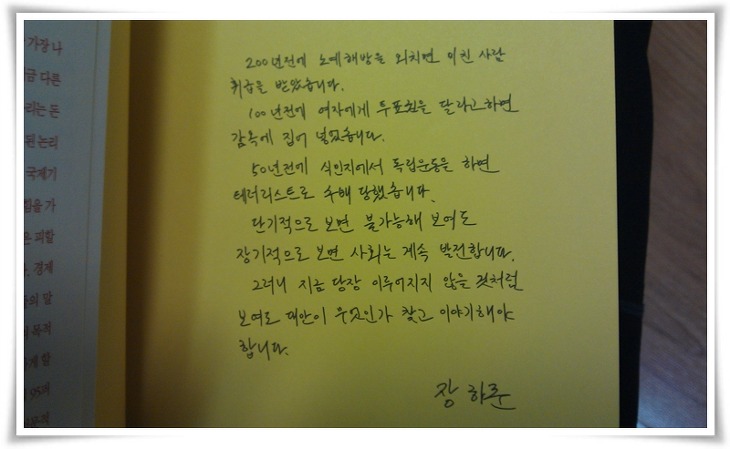 가장 나
금 다른
리는 돈
된 논리
국제기
힘을 가
은 피할
경제
의 말
목적
게 말
95개
목적
200년전에 노예해방을 외치면 미친 사람
취급을 받았습니다.
100년전에 여자에게 투표권을 달라고하면
감옥에 집어 넣었습니다.
50년전에 식민지에서 독립운동을 하면
테러리스트로 수배 당했습니다.
단기적으로 보면 불가능해 보여도
장기적으로 보면 사회는 계속 발전합니다.
그러니 지금 당장 이루어지지 않을 것처럼
보여도 대안이 무엇인가 찾고 이야기해야
합니다.
장 하준